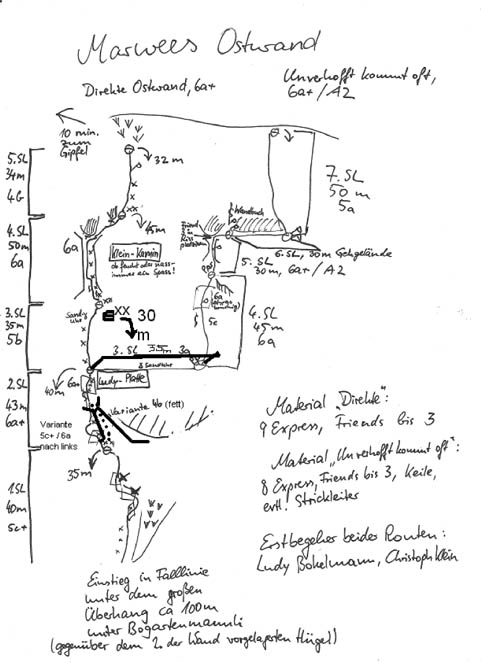 Marwees Ostwand
Direkte Ostwand, 6a+
Unverhofft kommt oft,
6a+ / A2
10 min.
zum
Gipfel
32 m
5. SL
34m
4b
7. SL
50 m
5a
45m
Wandbuch
4. SL
50m
6a
6a
Klein-Kamin
ob feucht oder nass-
immer ein Spass!
Friend
3 in
Riss
6. SL, 30m Gehgelände
5. SL
30m, 6a+/A2
Sanduhr
XX 30
m
6a
5c
4. SL
45m
6a
3. SL
35m
5b
3. SL 35m 3a
3 Sanduhren
40m
6a+
Ludy-Platte
2. SL
43m
6a+
Variante 4b (fett)
Variante
5c+ / 6a
nach links
35m
1. SL
40m
5c+
Material "Direkte":
9 Express, Friends bis 3
Material "Unverhofft kommt oft":
8 Express, Friends bis 3, Keile,
evtl. Strickleiter
Erstbegeher beider Routen:
Ludy Bokelmann, Christoph Klein
Einstieg in Falllinie
unter dem großen
Überhang ca 100m
unter Bogartenmannli
(gegenüber dem 2. der Wand vorgelagerten Hügel)